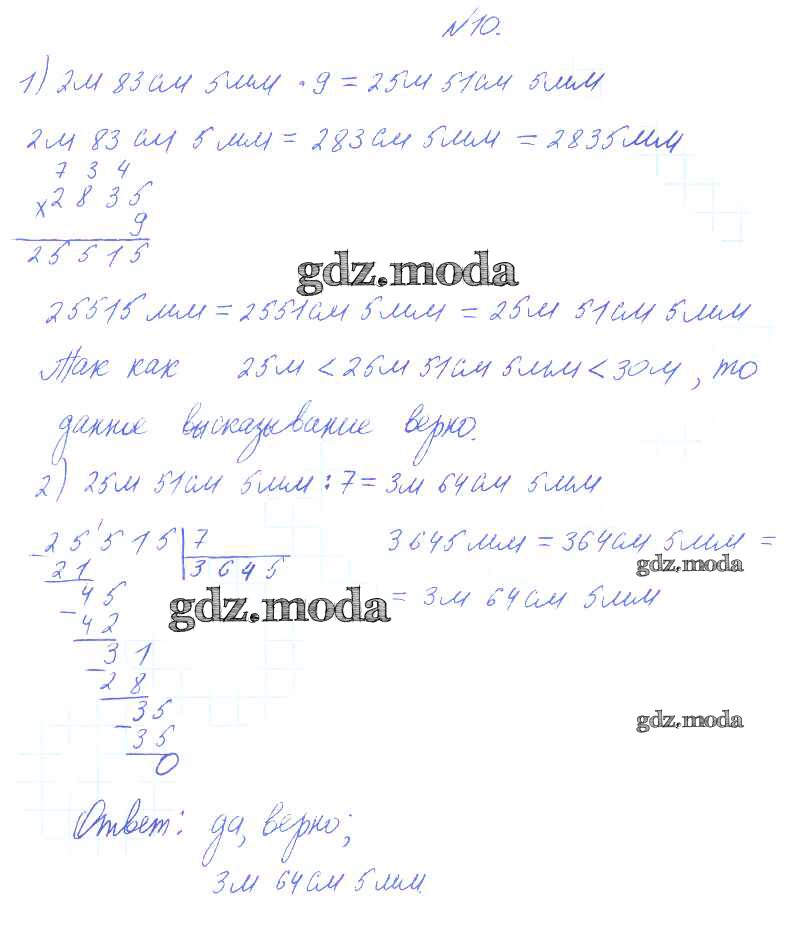 №10.
1) 2м 83см 5мм · 9 = 25м 51см 5мм
2м 83 см 5 мм = 283см 5мм = 2835мм
7 3 4
x 2 8 3 5
9
2 5 5 1 5
gdz.moda
25515 мм = 2551см 5мм = 25м 51см 5мм
Так как 25м < 25м 51см 5мм < 30м, то
данное высказывание верно.
2) 25м 51см 5мм : 7 = 3м 64см 5мм
- 2 5 5 1 5 | 7
2 1 | 3 6 4 5
3645мм = 364см 5мм =
gdz.moda
- 4 5
gdz.moda
= 3м 64см 5мм
4 2
- 3 1
2 8
- 3 5
gdz.moda
3 5
0
Ответ: да, верно;
3м 64см 5мм.